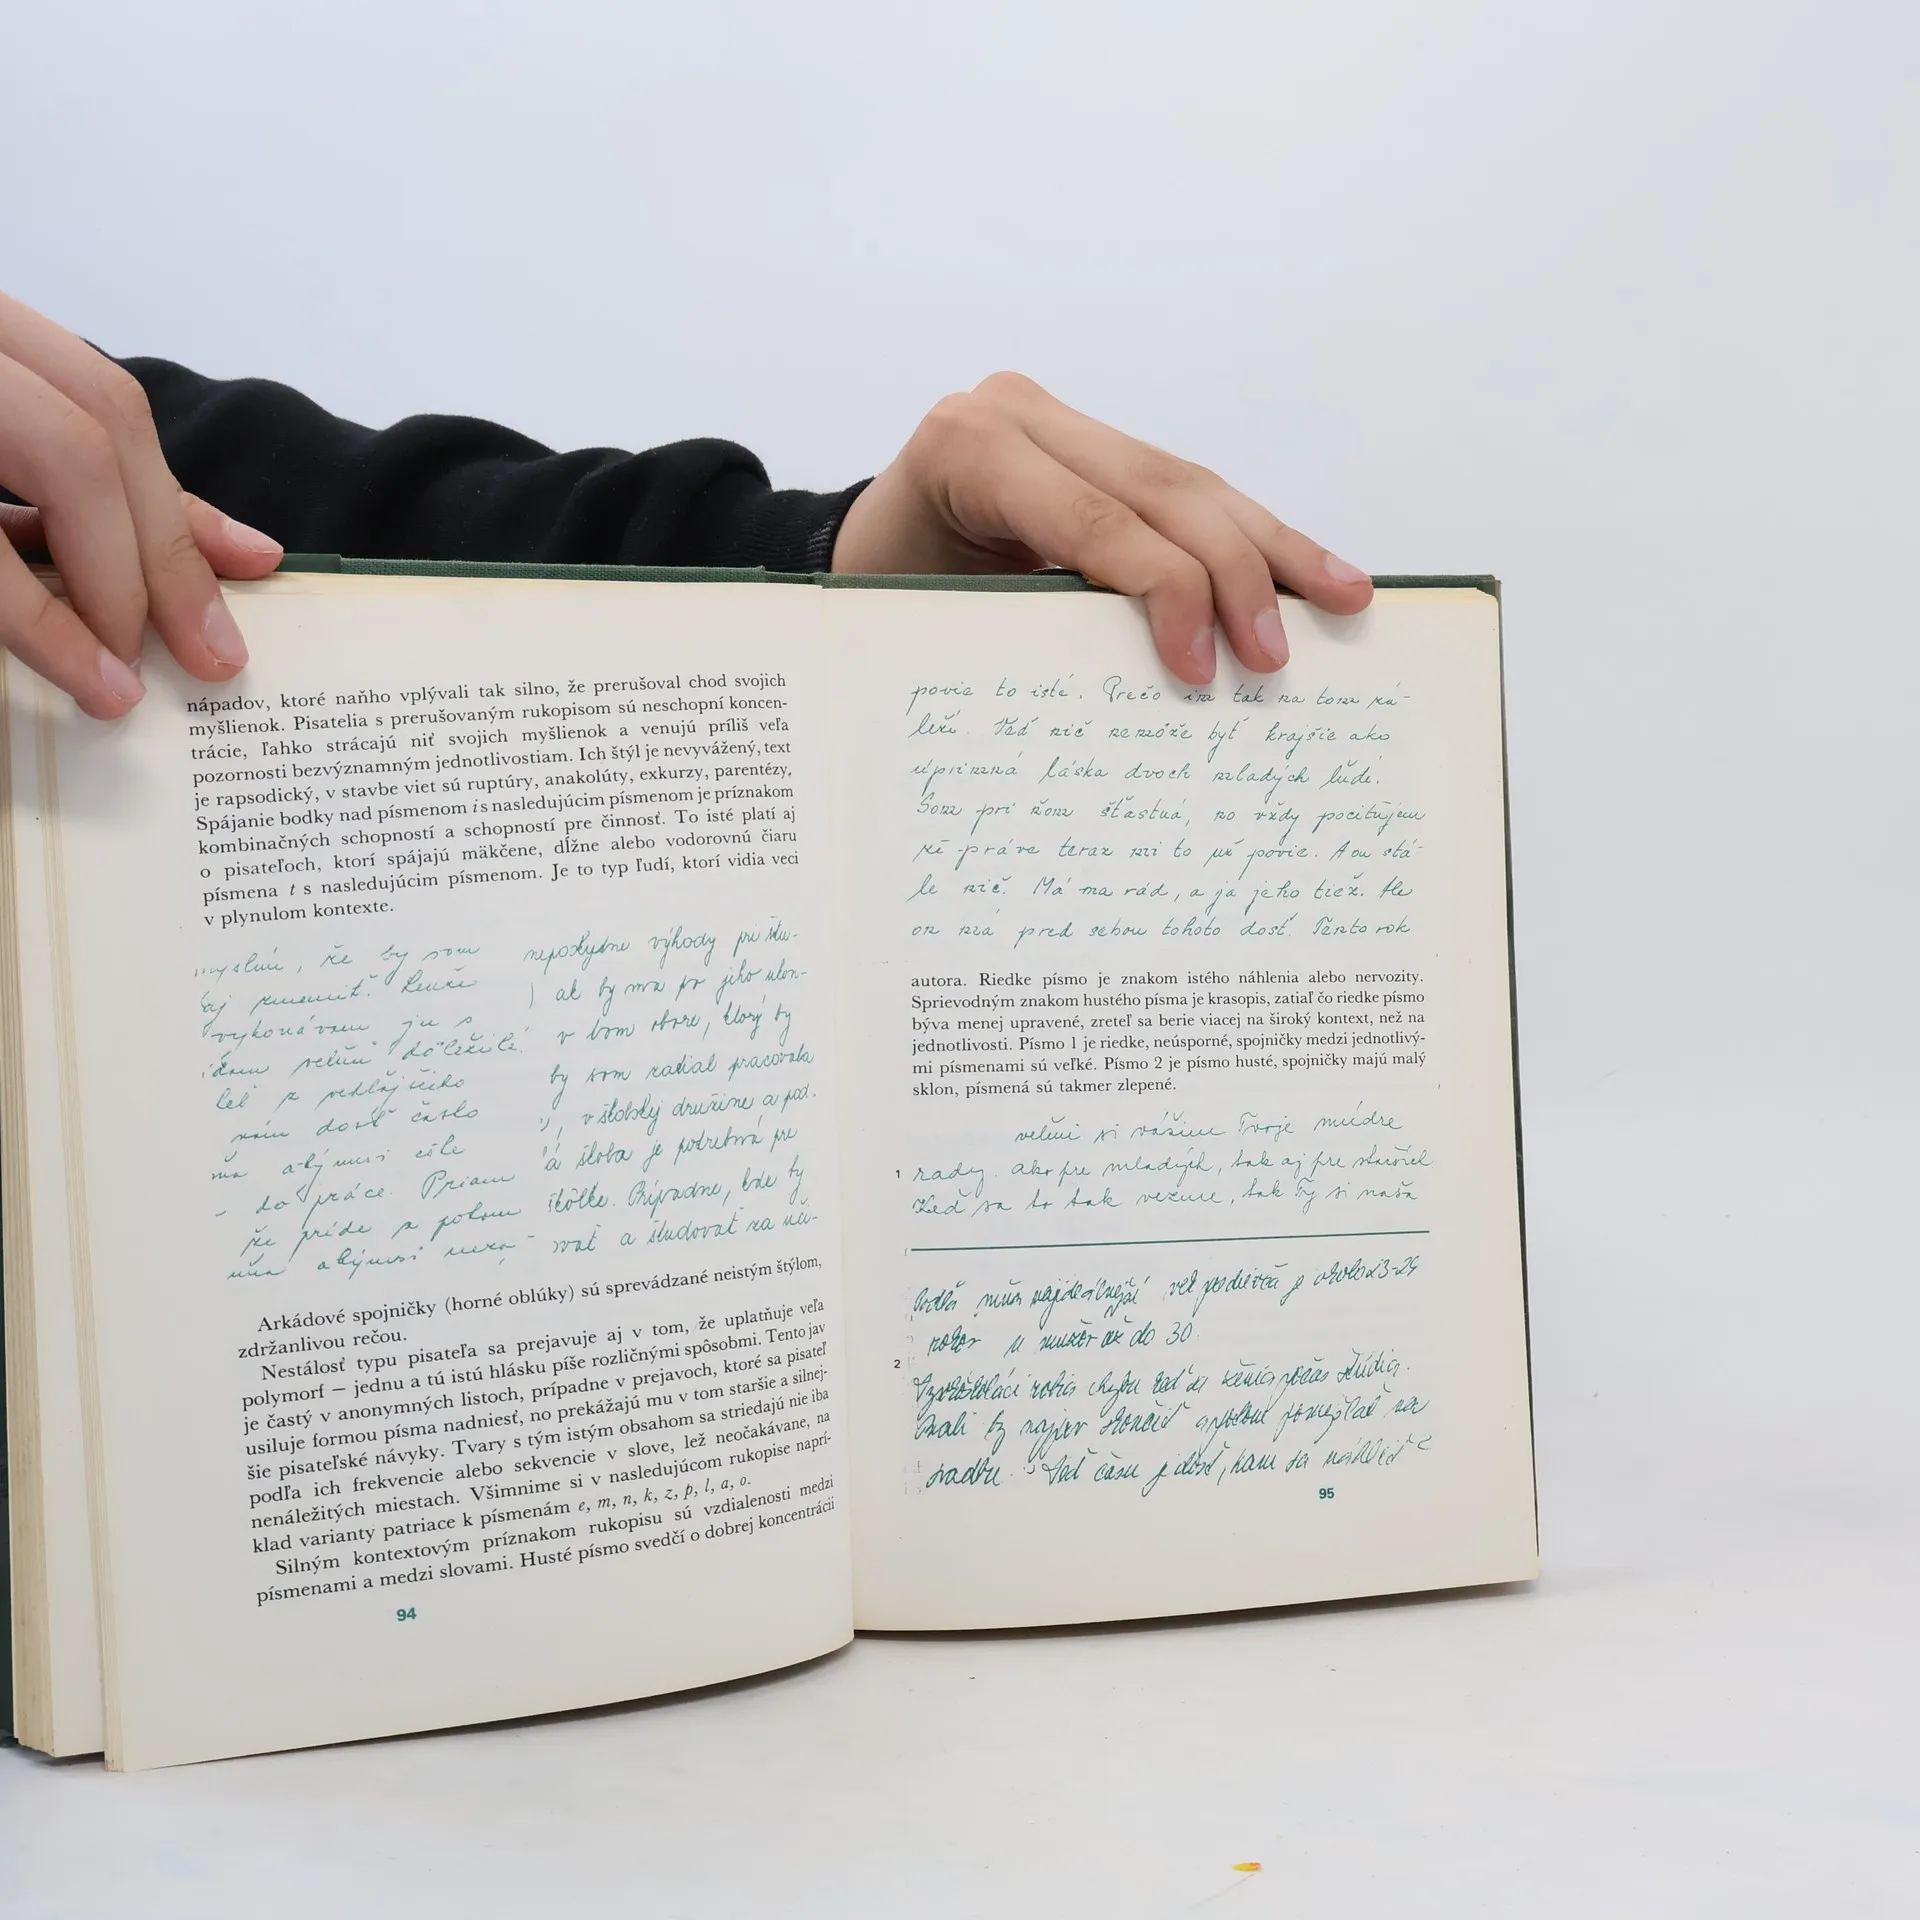 nápadov, ktoré naňho vplývali tak silno, že prerušoval chod svojich
myšlienok. Pisatelia s prerušovaným rukopisom sú neschopní koncen-
trácie, ľahko strácajú niť svojich myšlienok a venujú príliš veľa
pozornosti bezvýznamným jednotlivostiam. Ich štýl je nevyvážený, text
je rapsodický, v stavbe viet sú ruptúry, anakolúty, exkurzy, parentézy,
Spájanie bodky nad písmenom i s nasledujúcim písmenom je príznakom
kombinačných schopností a schopností pre činnosť. To isté platí aj
o pisateľoch, ktorí spájajú mäkčene, dĺžne alebo vodorovnú čiaru
písmena t s nasledujúcim písmenom. Je to typ ľudí, ktorí vidia veci
v plynulom kontexte.
myslím, že by som
aj zmeniť.
vykonávam ju s
veľmi dôležité.
z vedľajšieho
dosť často
aby mi ešte
do práce. Priam
že príde a potom
neposkytne výhody pri štu-
ak by ma po jeho ukon-
v tom obore, ktorý by
by som pracovala
v školskej družine a pod.
á škola je potrebná pre
škôlke. Prípadne, kde by
vať a študovať na uči-
Arkádové spojničky (horné oblúky) sú sprevádzané neistým štýlom,
zdržanlivou rečou.
Nestálosť typu pisateľa sa prejavuje aj v tom, že uplatňuje veľa
polymorf — jednu a tú istú hlásku píše rozličnými spôsobmi. Tento jav
je častý v anonymných listoch, prípadne v prejavoch, ktoré sa pisateľ
usiluje formou písma nadniesť, no prekážajú mu v tom staršie a silnej-
šie pisateľské návyky. Tvary s tým istým obsahom sa striedajú nie iba
podľa ich frekvencie alebo sekvencie v slove, lež neočakávane, na
nenáležitých miestach. Všimnime si v nasledujúcom rukopise naprí-
klad varianty patriace k písmenám e, m, n, k, z, p, l, a, o.
Silným kontextovým príznakom rukopisu sú vzdialenosti medzi
písmenami a medzi slovami. Husté písmo svedčí o dobrej koncentrácii
94
povie to isté. Prečo im tak na tom zá-
leží. Veď nič nemôže byť krajšie ako
úprimná láska dvoch mladých ľudí.
Som pri ňom šťastná, no vždy pociťujem
že práve teraz mi to už povie. A on stá-
le nič. Má ma rád, a ja jeho tiež. Ale
on má pred sebou tohoto dosť. Tento rok
autora. Riedke písmo je znakom istého náhlenia alebo nervozity.
Sprievodným znakom hustého písma je krasopis, zatiaľ čo riedke písmo
býva menej upravené, zreteľ sa berie viacej na široký kontext, než na
jednotlivosti. Písmo 1 je riedke, neúsporné, spojničky medzi jednotlivý-
mi písmenami sú veľké. Písmo 2 je písmo husté, spojničky majú malý
sklon, písmená sú takmer zlepené.
veľmi si vážime Tvoje múdre
1 rady. ako pre mladých, tak aj pre starších.
Keď sa to tak vezme, tak Ty si naša
Podľa mňa najideálnejší vek pre dievča je okolo 23-24
rokov u mužov až do 30.
2
Vysokoškoláci robia chybu keď sa ženia počas štúdia.
Mali by najprv skončiť a potom pomýšľať na
svadbu. Veď času je dosť, kam sa náhliť
95